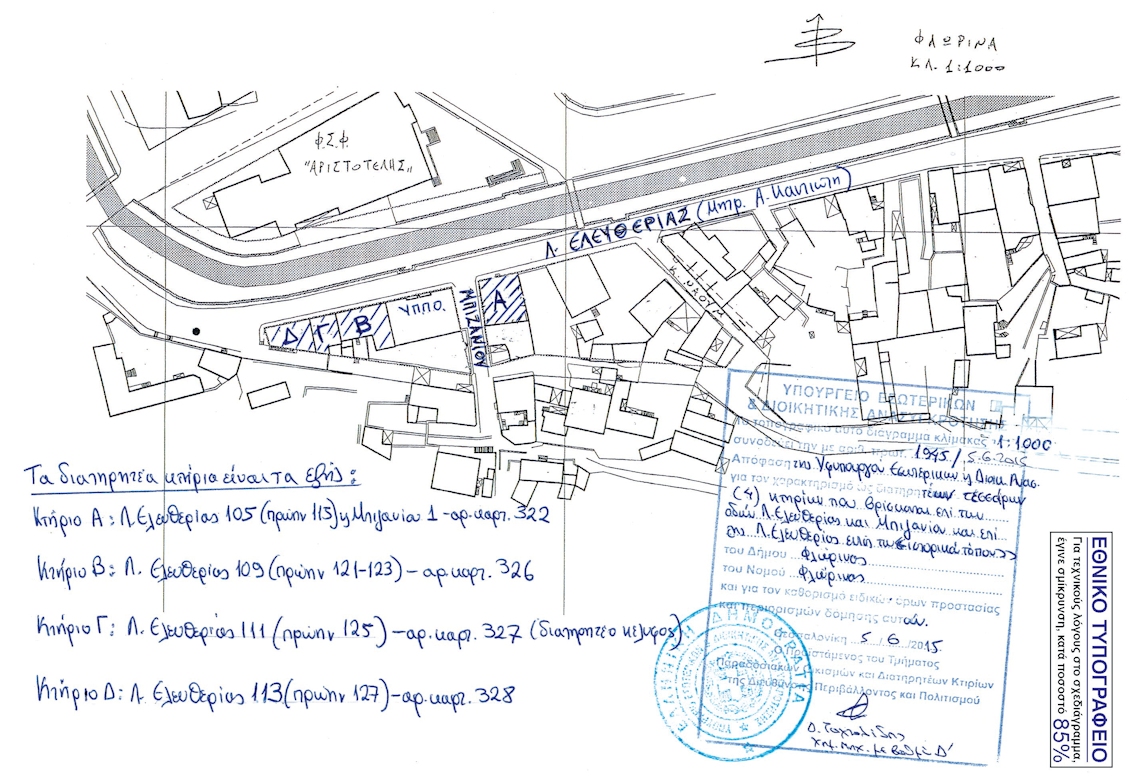 ΦΛΩΡΙΝΑ
ΚΛ. 1:1000
Φ.Σ.Φ.
"ΑΡΙΣΤΟΤΕΛΗΣ„
Λ. ΕΛΕΥΘΕΡΙΑΣ (Μητρ. Α. Καντιώτη)
ΜΠΙΖΑΝΙΟΥ
Α
ΥΠ.ΠΟ.
Β
Γ
Δ
Τα διατηρητέα κτήρια είναι τα εξής:
Κτήριο Α: Λ. Ελευθερίας 105 (πρώην 115) η Μπιζανίου 1 - αρ. καρτ. 322
Κτήριο Β: Λ. Ελευθερίας 109 (πρώην 121-123) - αρ. καρτ. 326
Κτήριο Γ: Λ. Ελευθερίας 111 (πρώην 125) - αρ. καρτ. 327 (διατηρητέο κέλυφος)
Κτήριο Δ: Λ. Ελευθερίας 113 (πρώην 127) - αρ. καρτ. 328
ΥΠΟΥΡΓΕΙΟ ΕΣΩΤΕΡΙΚΩΝ
& ΔΙΟΙΚΗΤΙΚΗΣ ΑΝΑΣΥΓΚΡΟΤΗΣΗΣ
Το τοπογραφικό αυτό διάγραμμα κλίμακας 1:1000
συνοδεύει την με αριθ. πρωτ. 1945/5.6.2015
Απόφαση της Υφυπουργού Εσωτερικών η Διοικ. Ανασ.
για τον χαρακτηρισμό ως διατηρητέων τεσσάρων
(4) κτηρίων που βρίσκονται επί των
οδών Λ. Ελευθερίας και Μπιζανίου και επί
της Λ. Ελευθερίας
του Δήμου Φλώρινας
του Νομού Φλώρινας
και για τον καθορισμό ειδικών όρων προστασίας
και περιορισμών δόμησης αυτών.
Θεσσαλονίκη 5/6/2015
Ο Προϊστάμενος του Τμήματος
Παραδοσιακών Οικισμών και Διατηρητέων Κτιρίων
της Διεύθυνσης Περιβάλλοντος και Πολιτισμού
ΕΛΛΗΝΙΚΗ ΔΗΜΟΚΡΑΤΙΑ
ΕΘΝΙΚΟ ΤΥΠΟΓΡΑΦΕΙΟ
Για τεχνικούς λόγους στο σχεδιάγραμμα,
έγινε σμίκρυνση, κατά ποσοστό 85%